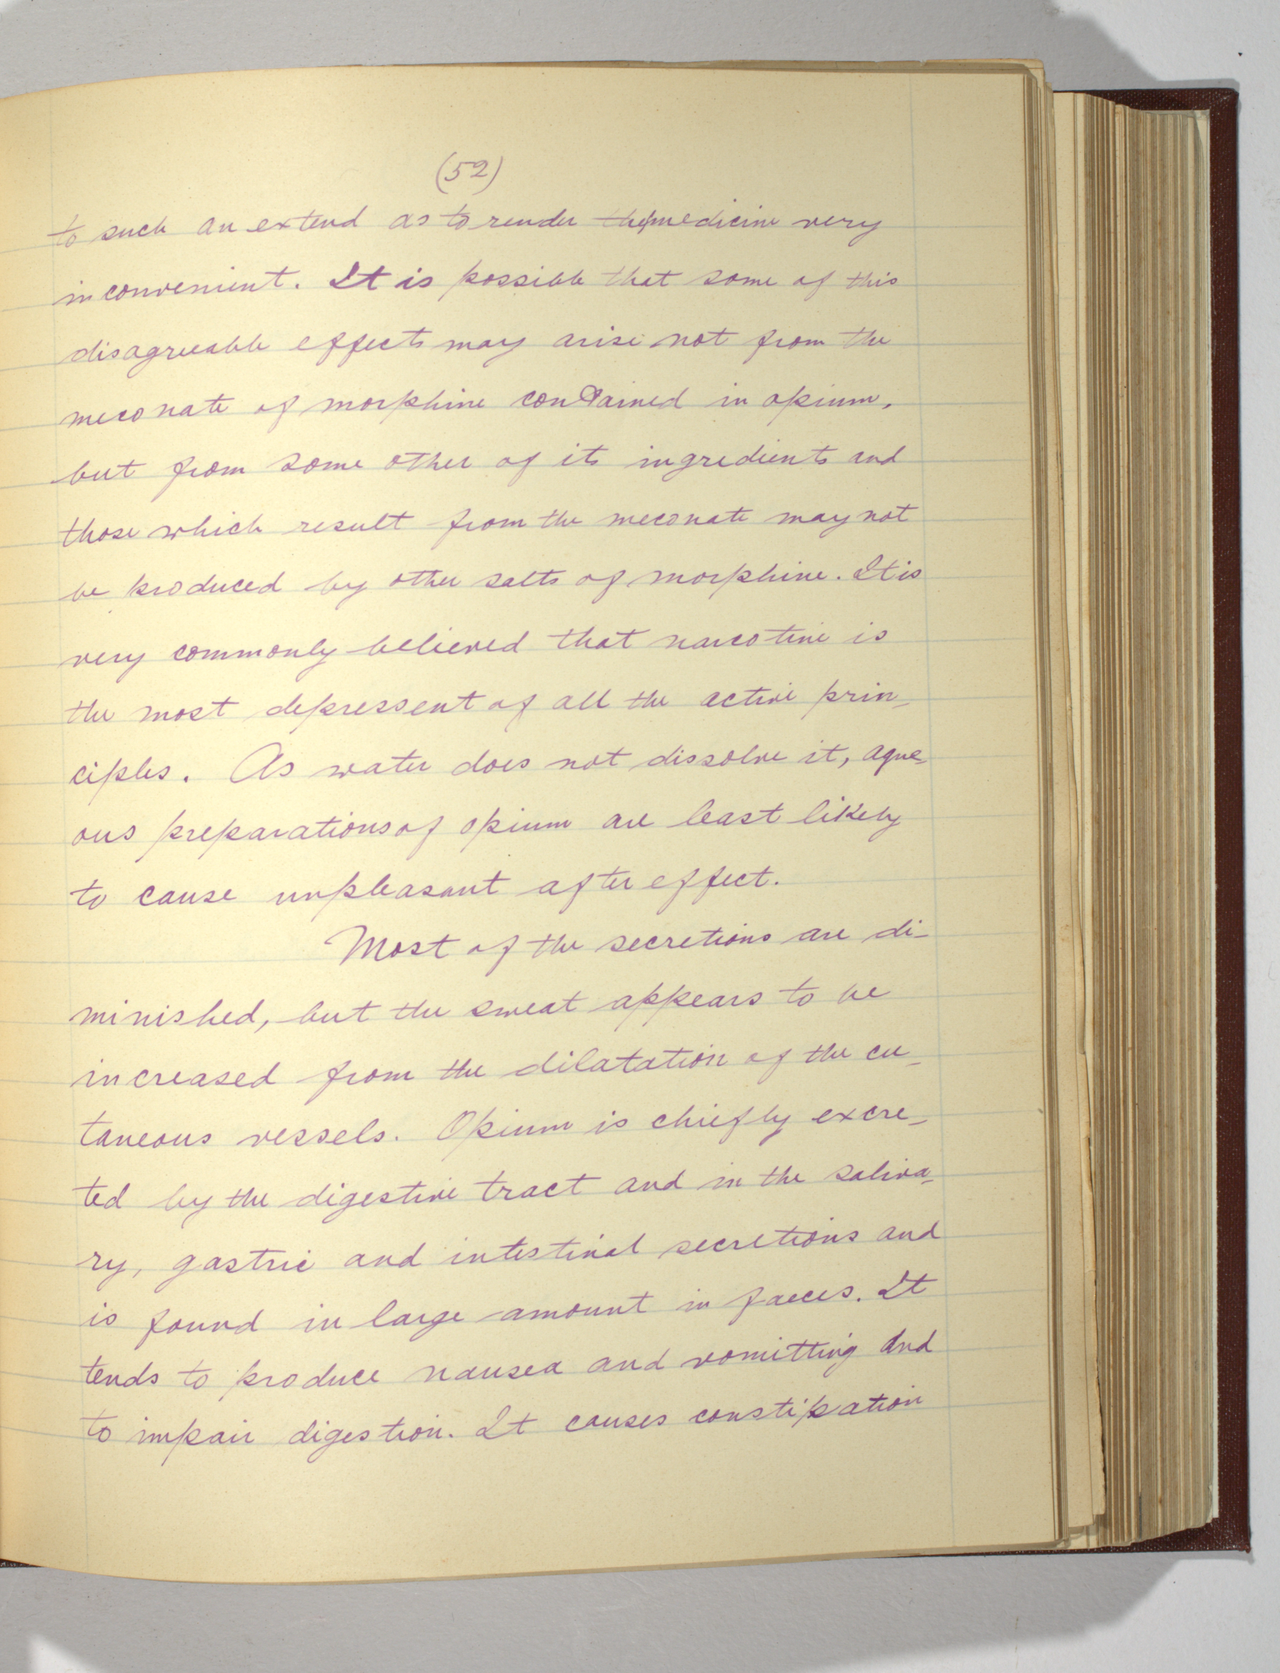 (52)
to such an extend as to render the medicine very
inconvenient. It is possible that some of this
disagreeable effects may arise not from the
meconate of morphine contained in opium,
but from some other of its ingredients and
those which result from the meconate may not
be produced by other salts of morphine. It is
very commonly believed that narcotine is
the most depressent of all the active prin-
ciples. As water does not dissolve it, aque-
ous preparations of opium are least likely
to cause unpleasant after effect.
Most of the secretions are di-
minished, but the sweat appears to be
increased from the dilatation of the cu-
taneous vessels. Opium is chiefly excre-
ted by the digestive tract and in the saliva-
ry, gastric and intestinal secretions and
is found in large amount in faeces. It
tends to produce nausea and vomitting and
to impair digestion. It causes constipation